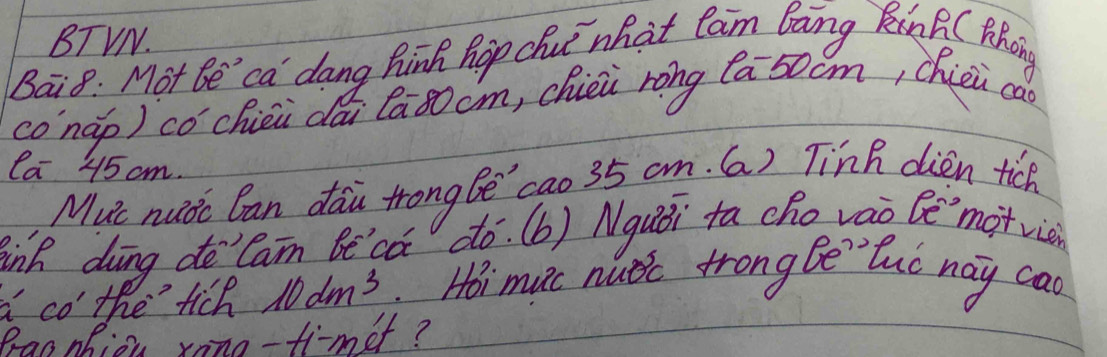 BTVN.
Bài 8: Một bể cá dạng hình hộp chữ nhật làm bằng kính (không
có nắp) có chiều dài là 80 cm, chiều rộng là 50 cm, chiều cao
là 45 cm.
Mực nước ban đầu trong bể cao 35 cm. (a) Tính diện tích
kính dùng để làm bể cá đó. (b) Người ta cho vào bể một viên
đá có thể tích 10 dm³. Hỏi mực nước trong bể lúc này cao
bao nhiêu xăng-ti-mét?